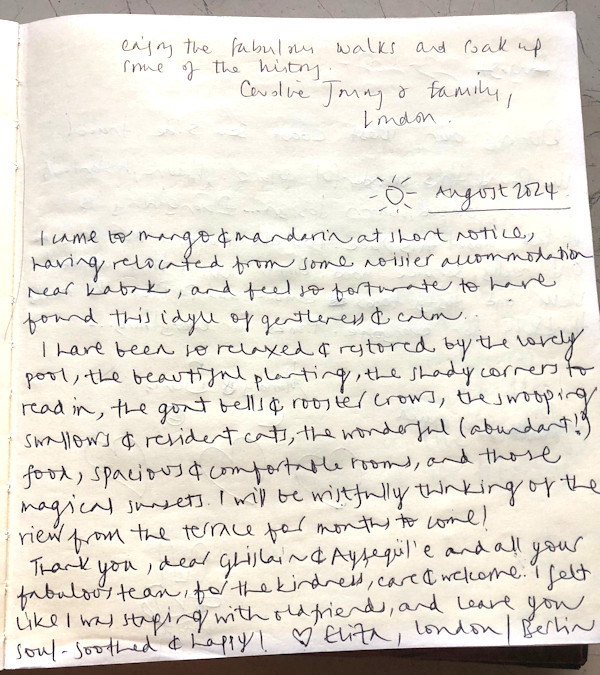 enjoy the fabulous walks and soak up
some of the history.
Caroline & family,
London.
August 2024
I came to mango & mandarin at short notice,
having relocated from some noisier accommodation
near Kabak, and feel so fortunate to have
found this idyll of gentleness & calm.
I have been so relaxed & restored by the lovely
pool, the beautiful planting, the shady corners to
read in, the goat bells & rooster crows, the swooping
swallows & resident cats, the wonderful (abundant!?)
food, spacious & comfortable rooms, and those
magical sunsets. I will be wistfully thinking of the
view from the terrace for months to come!
Thank you, dear Ghislain & Ayşegül'e and all your
fabulous team, for the kindness, care & welcome. I felt
like I was staying with old friends, and leave you
soul-soothed & happy! ♡ Eliza, London/Berlin